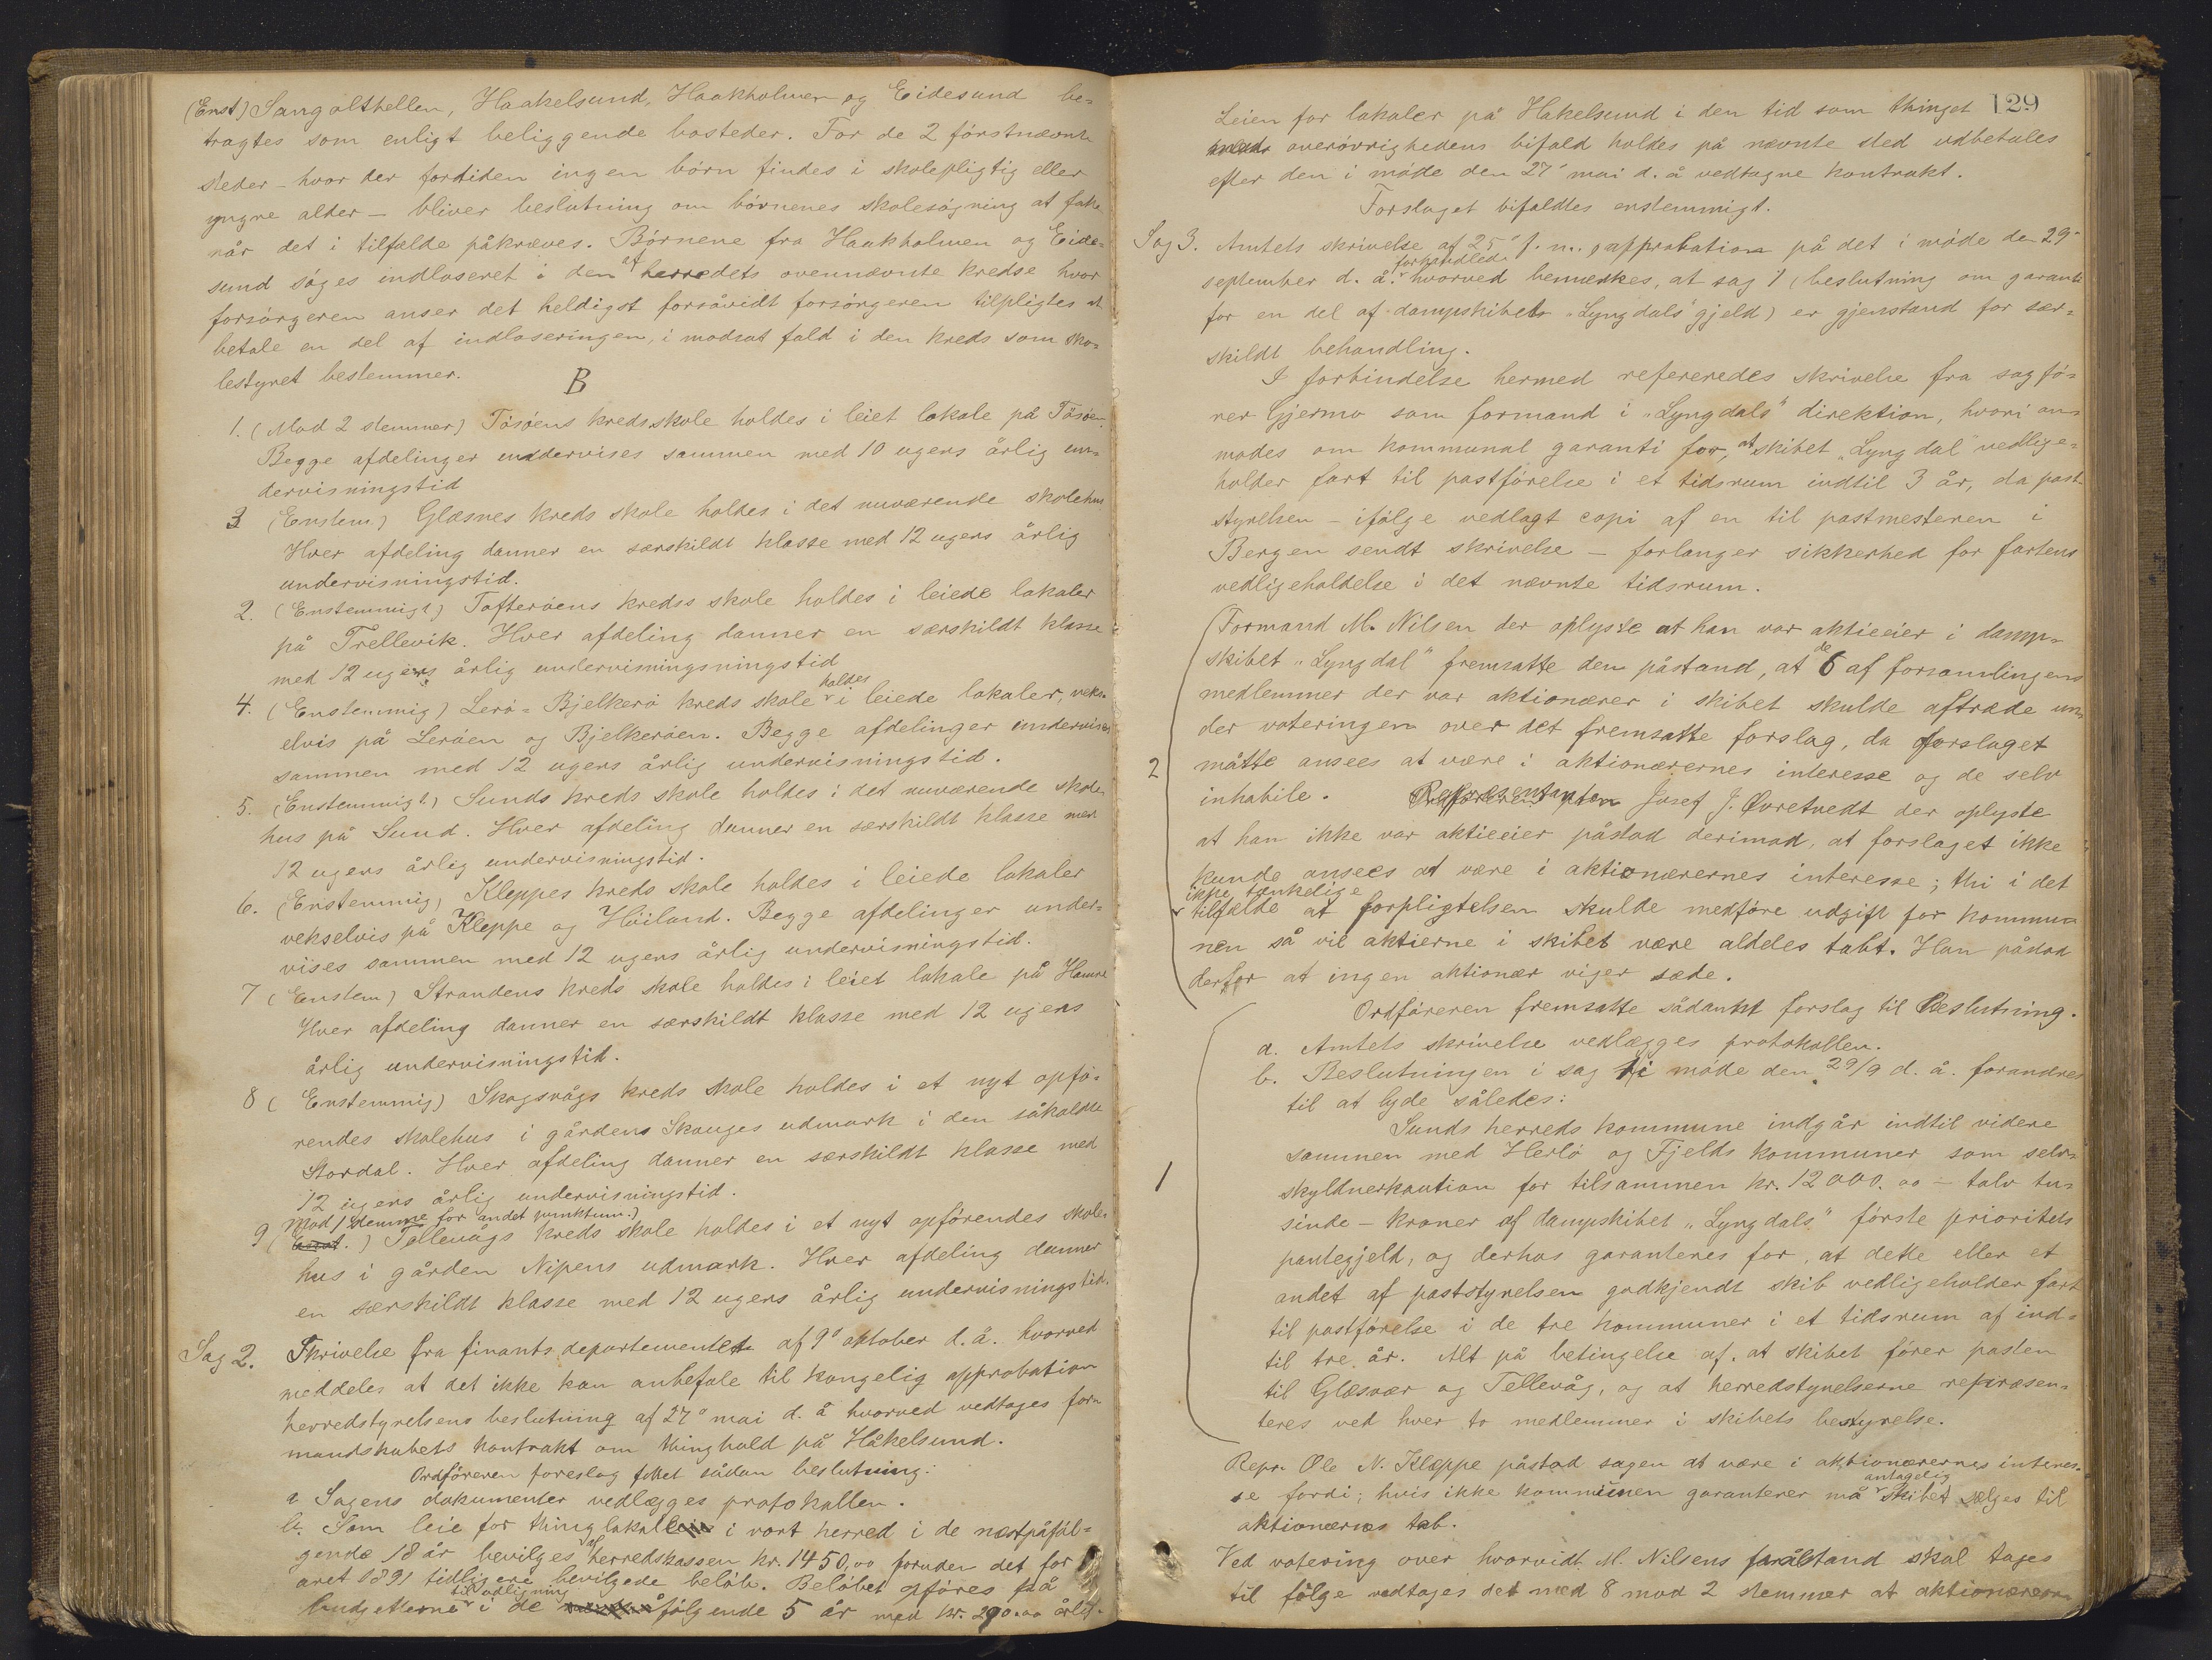 (Enst) Sangolthellen, Haakelsund, Haakholmen og Eidesund be-
tragtes som enligt beliggende bosteder. For de 2 förstnævnte
steder - hvor der fortiden ingen börn findes i skolepligtig eller
yngre alder - bliver beslutning om börnenes skolesögning at fatte
når det i tilfælde påkræves. Börnene fra Haakholmen og Eide-
sund söges indloseret i den af herredets ovennævnte kredse hvor
forsörgeren anser det heldigst forsåvidt forsörgeren tilpligtes at
betale en del af indloseringen, i modsat fald i den kreds som sko-
lestyret bestemmer.
B
1. (Mod 2 stemmer) Tösöens kredsskole holdes i leiet lokale på Tösöen.
Begge afdelinger undervises sammen med 10 ugers årlig un-
dervisningstid
3 (Enstem.) Glæsnes kreds skole holdes i det nuværende skolehus
Hver afdeling danner en særskildt klasse med 12 ugers årlig
undervisningstid.
2. (Enstemmigt) Tofteröens kreds skole holdes i leiede lokaler
på Trellevik. Hver afdeling danner en særskildt klasse
med 12 ugers årlig undervisningsningstid
4. (Enstemmig) Lerö- Bjelkerö kreds skole holdes i leiede lokaler, veks-
elvis på Leröen og Bjelkeröen. Begge afdelinger undervises
sammen med 12 ugers årlig undervisningstid.
5. (Enstemmigt) Sunds kreds skole holdes i det nuværende skole-
hus på Sund. Hver afdeling danner en særskildt klasse med
12 ugers årlig undervisningstid.
6. (Enstemmig) Kleppes kreds skole holdes i leiede lokaler
vekselvis på Kleppe og Höiland. Begge afdelinger under-
vises sammen med 12 ugers årlig undervisningstid.
7 (Enstem) Strandens kreds skole holdes i leiet lokale på Hamre
Hver afdeling danner en særskildt klasse med 12 ugers
årlig undervisningstid.
8 (Enstemmig) Skogsvågs kreds skole holdes i et nyt opfö-
rendes skolehus i gårdens Skauges udmark i den såkaldte
Stordal. Hver afdeling danner en særskildt klasse med
12 ugers årlig undervisningstid.
Mod 1 stemme for andet punktum.)
9 (Enst.) Tellevågs kreds skole holdes i et nyt opförendes skole-
hus i gården Nipens udmark. Hver afdeling danner
en særskildt klasse med 12 ugers årlig undervisningstid.
Sag 2. Skrivelse fra finants departementet af 9d oktober d.å. hvorved
meddeles at det ikke kan anbefale til kongelig approbation
herredstyrelsens beslutning af 27d mai d. å hvorved vedtages for-
mandskabets kontrakt om thinghold på Håkelsund.
Ordföreren foreslog fattet sådan beslutning:
a Sagens dokumenter vedlægges protokollen.
b. Som leie for thinglokale i vort herred i de næstpåföl-
gende 18 år bevilges af herredskassen kr. 1450,00 foruden det for
året 1891 tidligere bevilgede belöb. Belöbet opföres på
budgetterne til udligning i de följende 5 år med kr. 290.00 årlig.
129
Leien for lokaler på Hakelsund i den tid som thinget
overövrighedens bifald holdes på nævnte sted udbetales
efter den i möde den 27d mai d. å vedtagne kontrakt.
Forslaget bifaldtes enstemmigt.
Sag 3. Amtets skrivelse af 25d f. m. approbation på det i möde den 29d
september d. å. forhandlede hvorved bemerkes, at sag 1 (beslutning om garanti
for en del af dampskibets "Lyngdals" gjeld) er gjenstand for sær-
skildt behandling.
I forbindelse hermed refereredes skrivelse fra sagfö-
rer Gjermo som formand i "Lyngdals" direktion, hvori an-
modes om kommunal garanti for, at skibet "Lyngdal" vedlige-
holder fart til postförelse i et tidsrum indtil 3 år, da post-
styrelsen - ifölge vedlagt copi af en til postmesteren i
Bergen sendt skrivelse - forlanger sikkerhed for fartens
vedligeholdelse i det nævnte tidsrum.
Formand M. Nilsen der oplyste at han var aktieeier i damp-
skibet "Lyngdal" fremsatte den påstand, at de 6 af forsamlingens
medlemmer der var aktionærer i skibet skulde aftræde un-
der voteringen over det fremsatte forslag, da forslaget
2 måtte ansees at være i aktionærernes interesse og de selv
inhabile. Repræsentanten Josef J. Øvretvedt der oplyste
at han ikke var aktieeier påstod derimod, at forslaget ikke
kunde ansees at være i aktionærernes interesse; thi i det
ikke tænkelige
tilfælde at forpligtelsen skulde medföre udgift for kommu-
nen så vil aktierne i skibet være aldeles tabt. Han påstod
derfor at ingen aktionær viger sæde.
Ordföreren fremsatte sådant forslag til beslutning.
a. Amtets skrivelse vedlægges protokollen.
b. Beslutningen i sag 1 i möde den 29/9 d. å. forandres
til at lyde således:
Sunds herreds kommune indgår indtil videre
sammen med Herlö og Fjelds kommuner som selv-
1 skyldnerkaution for tilsammen kr. 12000.00 - tolv tu-
sinde - kroner af dampskibet "Lyngdals" förste prioritets
pantegjeld, og derhos garanteres for, at dette eller et
andet af poststyrelsen godkjendt skib vedligeholder fart
til postförelse i de tre kommuner i et tidsrum af ind-
til tre år. Alt på betingelse af, at skibet förer posten
til Glæsvær og Tellevåg, og at herredstyrelserne repræsen-
teres ved hver to medlemmer i skibets bestyrelse.
Repr. Ole N. Kleppe påstod sagen at være i aktionærernes interes-
se fordi; hvis ikke kommunen garanterer må antagelig skibet sælges til
aktionærnes tab.
Ved votering over hvorvidt M. Nilsens påstand skal tages
til fölge vedtages det med 8 mod 2 stemmer at aktionærerne